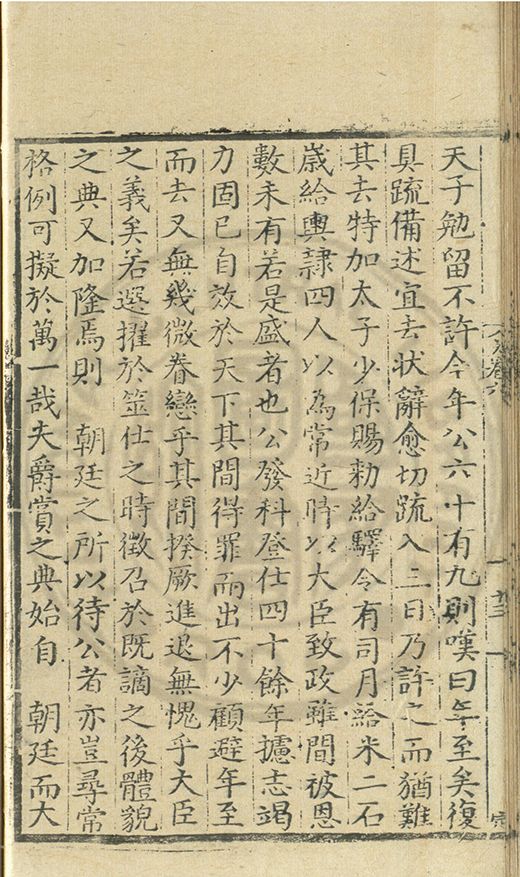 天子勉留不許今年公六十有九則嘆曰年至矣復
具疏備述宜去状辭愈切疏入三日乃許之而猶難
其去特加太子少保賜勑給驛令有司月給米二石
歲給輿隸四人以為常近時以大臣致政雖間被恩
數未有若是盛者也公發科登仕四十餘年攄志竭
力固已自效於天下其間得罪而出不少顧避年至
而去又無幾微眷戀乎其間揆厥進退無愧乎大臣
之義矣若選擢於筮仕之時徵召於既謫之後體貌
之典又加隆焉則　朝廷之所以待公者亦豈尋常
格例可擬於萬一哉夫爵賞之典始自　朝廷而大